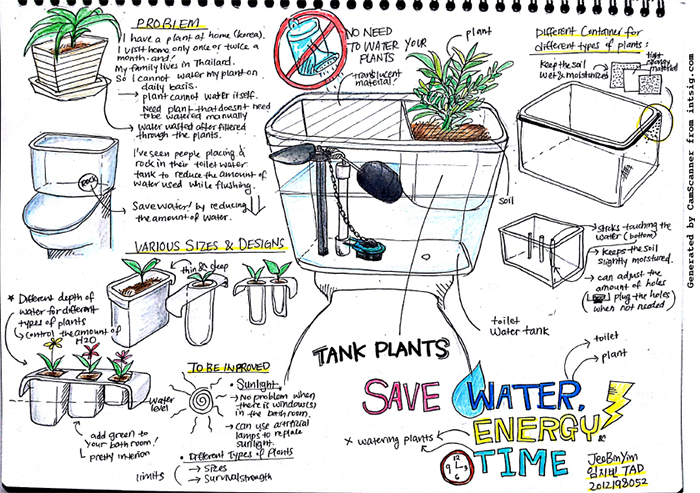 PROBLEM
I have a plant at home (korea).
I visit home only once or twice a
month and!
My family lives in Thailand.
So I cannot water my plant on
daily basis.
→ plant cannot water itself.
Need plant that doesn't need
to be watered manually
Water wasted after filtered
through the plants.
I've seen people placing a
rock in their toilet water
tank to reduce the amount of
water used while flushing.
ROCK
Save water! by reducing
the amount of water.
NO NEED
TO WATER YOUR
PLANTS
translucent
material!
plant
soil
toilet
Water tank
TANK PLANTS
Different Container for
different types of plants:
Keep the soil
wet & moistured
material
sticks touching the
water (bottom)
→ Keeps the soil
slightly moistured.
→ can adjust the
amount of holes
plug the holes
when not needed
VARIOUS SIZES & DESIGNS
thin & deep
* Different depth of
water for different
types of plants
→ control the amount of
H2O
water
level
add green to
your bathroom!
pretty interior
TO BE IMPROVED
• Sunlight
→ No problem when
there is window(s)
in the bathroom.
→ Can use artificial
lamps to replace
sunlight.
• Different Types of Plants
limits
→ sizes
→ survival strength
SAVE WATER,
ENERGY &
TIME
toilet
plant
x watering plants
12
3
6
9
JeeBinYim
임지빈 TAD
2012198052
Generated by CamScanner from intsig.com